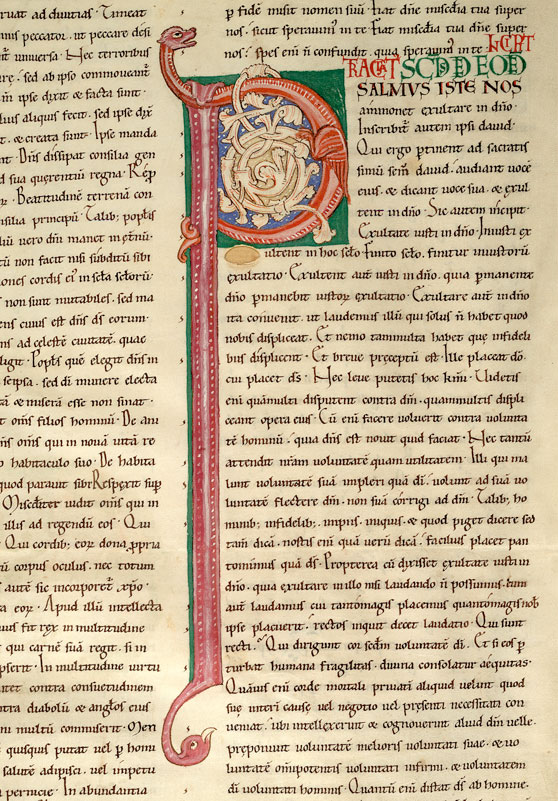 ervat ad duritias. Timeat
mus peccator. ut peccare desi
universa. Hec terroribus
re. sed ab ipso commoveant
m ipse dixit & facta sunt.
luas aliquis fecit. sed ipse dix
it. & creata sunt. Ipse manda
Dñs dissipat consilia gen
d sua querentiũ regna. Rep
Beatitudinẽ terrenã con
nsilia principũ. Talib; poplis
liũ vero dñi manet in etnũ.
tũ non facit nisi subditũ sibi
iones cordis ei' in scła scłorũ
s non sunt mutabiles. sed ma
ens cuius est dñs ds eorum.
ad celestẽ civitatẽ. quae
ligit. Popłs quẽ elegit dñs in
seipsa. sed di munere electa
tã & miserã esse non sinat.
t oms filios hominũ. De
ñs oms qui in novã vitã re
habitaculo suo. De habita
quod paravit sibi Respexit sup
Misediter vidit oms qui in
illis ad regendũ eos. Qui
Qui cordib; eor dona ppria
ũ corpus oculus. nec totum
autẽ sic incorporet xpo.
ta eor. Apud illũ intellecta
us fit rex in multitudine
qui carnẽ suã regit. si in
pserit. In multitudine virtu
itet contra consuetudinem
tra diabolũ & anglos eius
multũ commiserit. Men
quisquis putat vel p homi
salutẽ adipisci. vel impetu
pernicie. In abundantia
p fidẽ misit nomen suũ. Fiat dñe misedia tua super
nos. sicut speravim' in te. Fiat misedia tua dñe super
nos. spes eni ñ confundit. qua speravim' in te. INCIPIT
TRACT SCDI DE EOD
SALMUS ISTE NOS
ammonet exultare in dño.
Inscribit autem ipsi david.
Qui ergo ptinent ad sacratis
simũ sem david. audiant voce
eius. & dicant voce sua. & exul
tent in dño. Sic autem incipit.
Exultate iusti in dño. Iniusti ex
ultent in hoc sclo. Finito sclo. finitur iniustorũ
exultatio. Exultent aut iusti in dño. quia pmanente
dño pmanebit iustor exultatio. Exultare aut in dño
ita convenit. ut laudemus illũ qui solus ñ habet quod
nobis displiceat. Et nemo tam multa habet que infideli
bus displicent. Et breve preceptũ est. Ille placeat dõ.
cui placet ds. Nec leve putetis hoc krmi. Videtis
eni quã multi disputent contra dñm. quam multis displi
ceant opera eius. Cũ eni facere voluerit contra volunta
tẽ hominũ. quia dñs est novit quid faciat. Nec tantũ
attendit nrãm voluntatẽ quam utilitatem. Illi qui ma
lunt voluntatẽ suã impleri quã di. volunt ad suã vo
luntatẽ flectere dm. non suã corrigi ad dm. Talib; ho
minib; infidelib;. impiis. iniquis. & quod piget dicere sed
tam dicã. nostis eni quã verũ dicã. facilius placet pan
tomimus quã ds. Propterea cũ dixisset exultate iusti in
dño. quia exultare in illo nisi laudando ñ possumus. tum
aut laudamus cui tanto magis placemus quanto magis nob
ipse placuerit. rectos inquit decet laudatio. Qui sunt
recti. Qui dirigunt cor secdm voluntatẽ di. Et si eos p
turbat humana fragilitas. divina consolatur aequitas.
Quãvis eni corde mortali privatĩ aliquid velint quod
sue interi cause vel negotio vel presenti necessitati con
veniat. ubi intellexerint & cognoverint aliud dm velle.
preponunt voluntatẽ melioris voluntati suae. & vo
luntatẽ omipotentis voluntati infirmi. & voluntatem
di voluntati hominis. Quantũ eni distat ds ab homine.